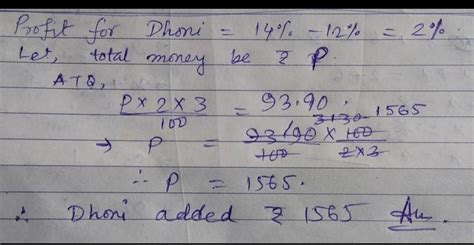 Profit for Dhoni = 14% - 12% = 2%.
Let, total money be ₹ P.
ATQ,
P × 2 × 3 / 100 = 93.90.
→ P = 93.90 × 100 / 100 2×3 3130 1565
∴ P = 1565.
∴ Dhoni added ₹ 1565 Ans